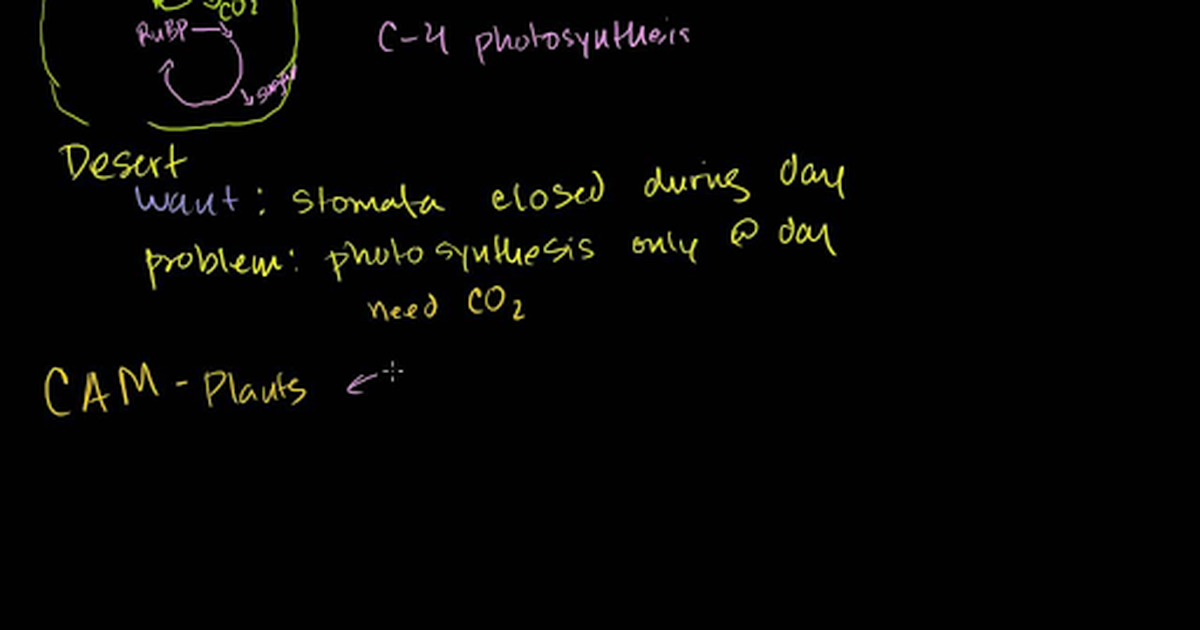 CO2
RuBP
C-4 photosynthesis
sugar
Desert
want: stomata closed during day
problem: photosynthesis only @ day
need CO2
CAM - Plants